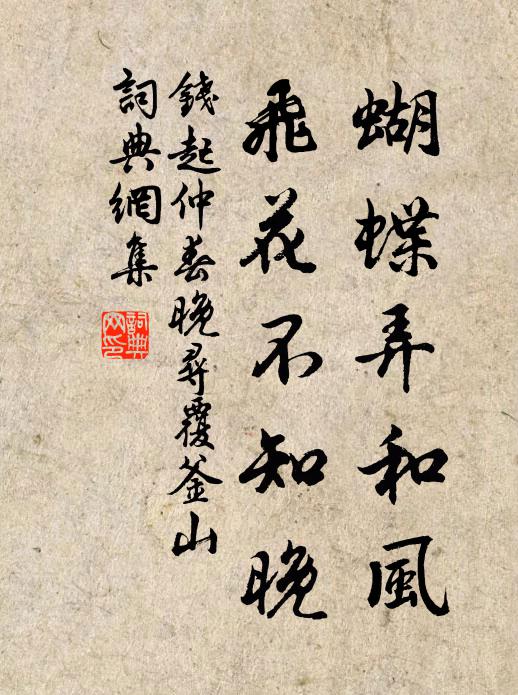 蝴蝶弄和風
飛花不知晚
錢起仲春晚尋覆釜山
詞典網集
詞典網印